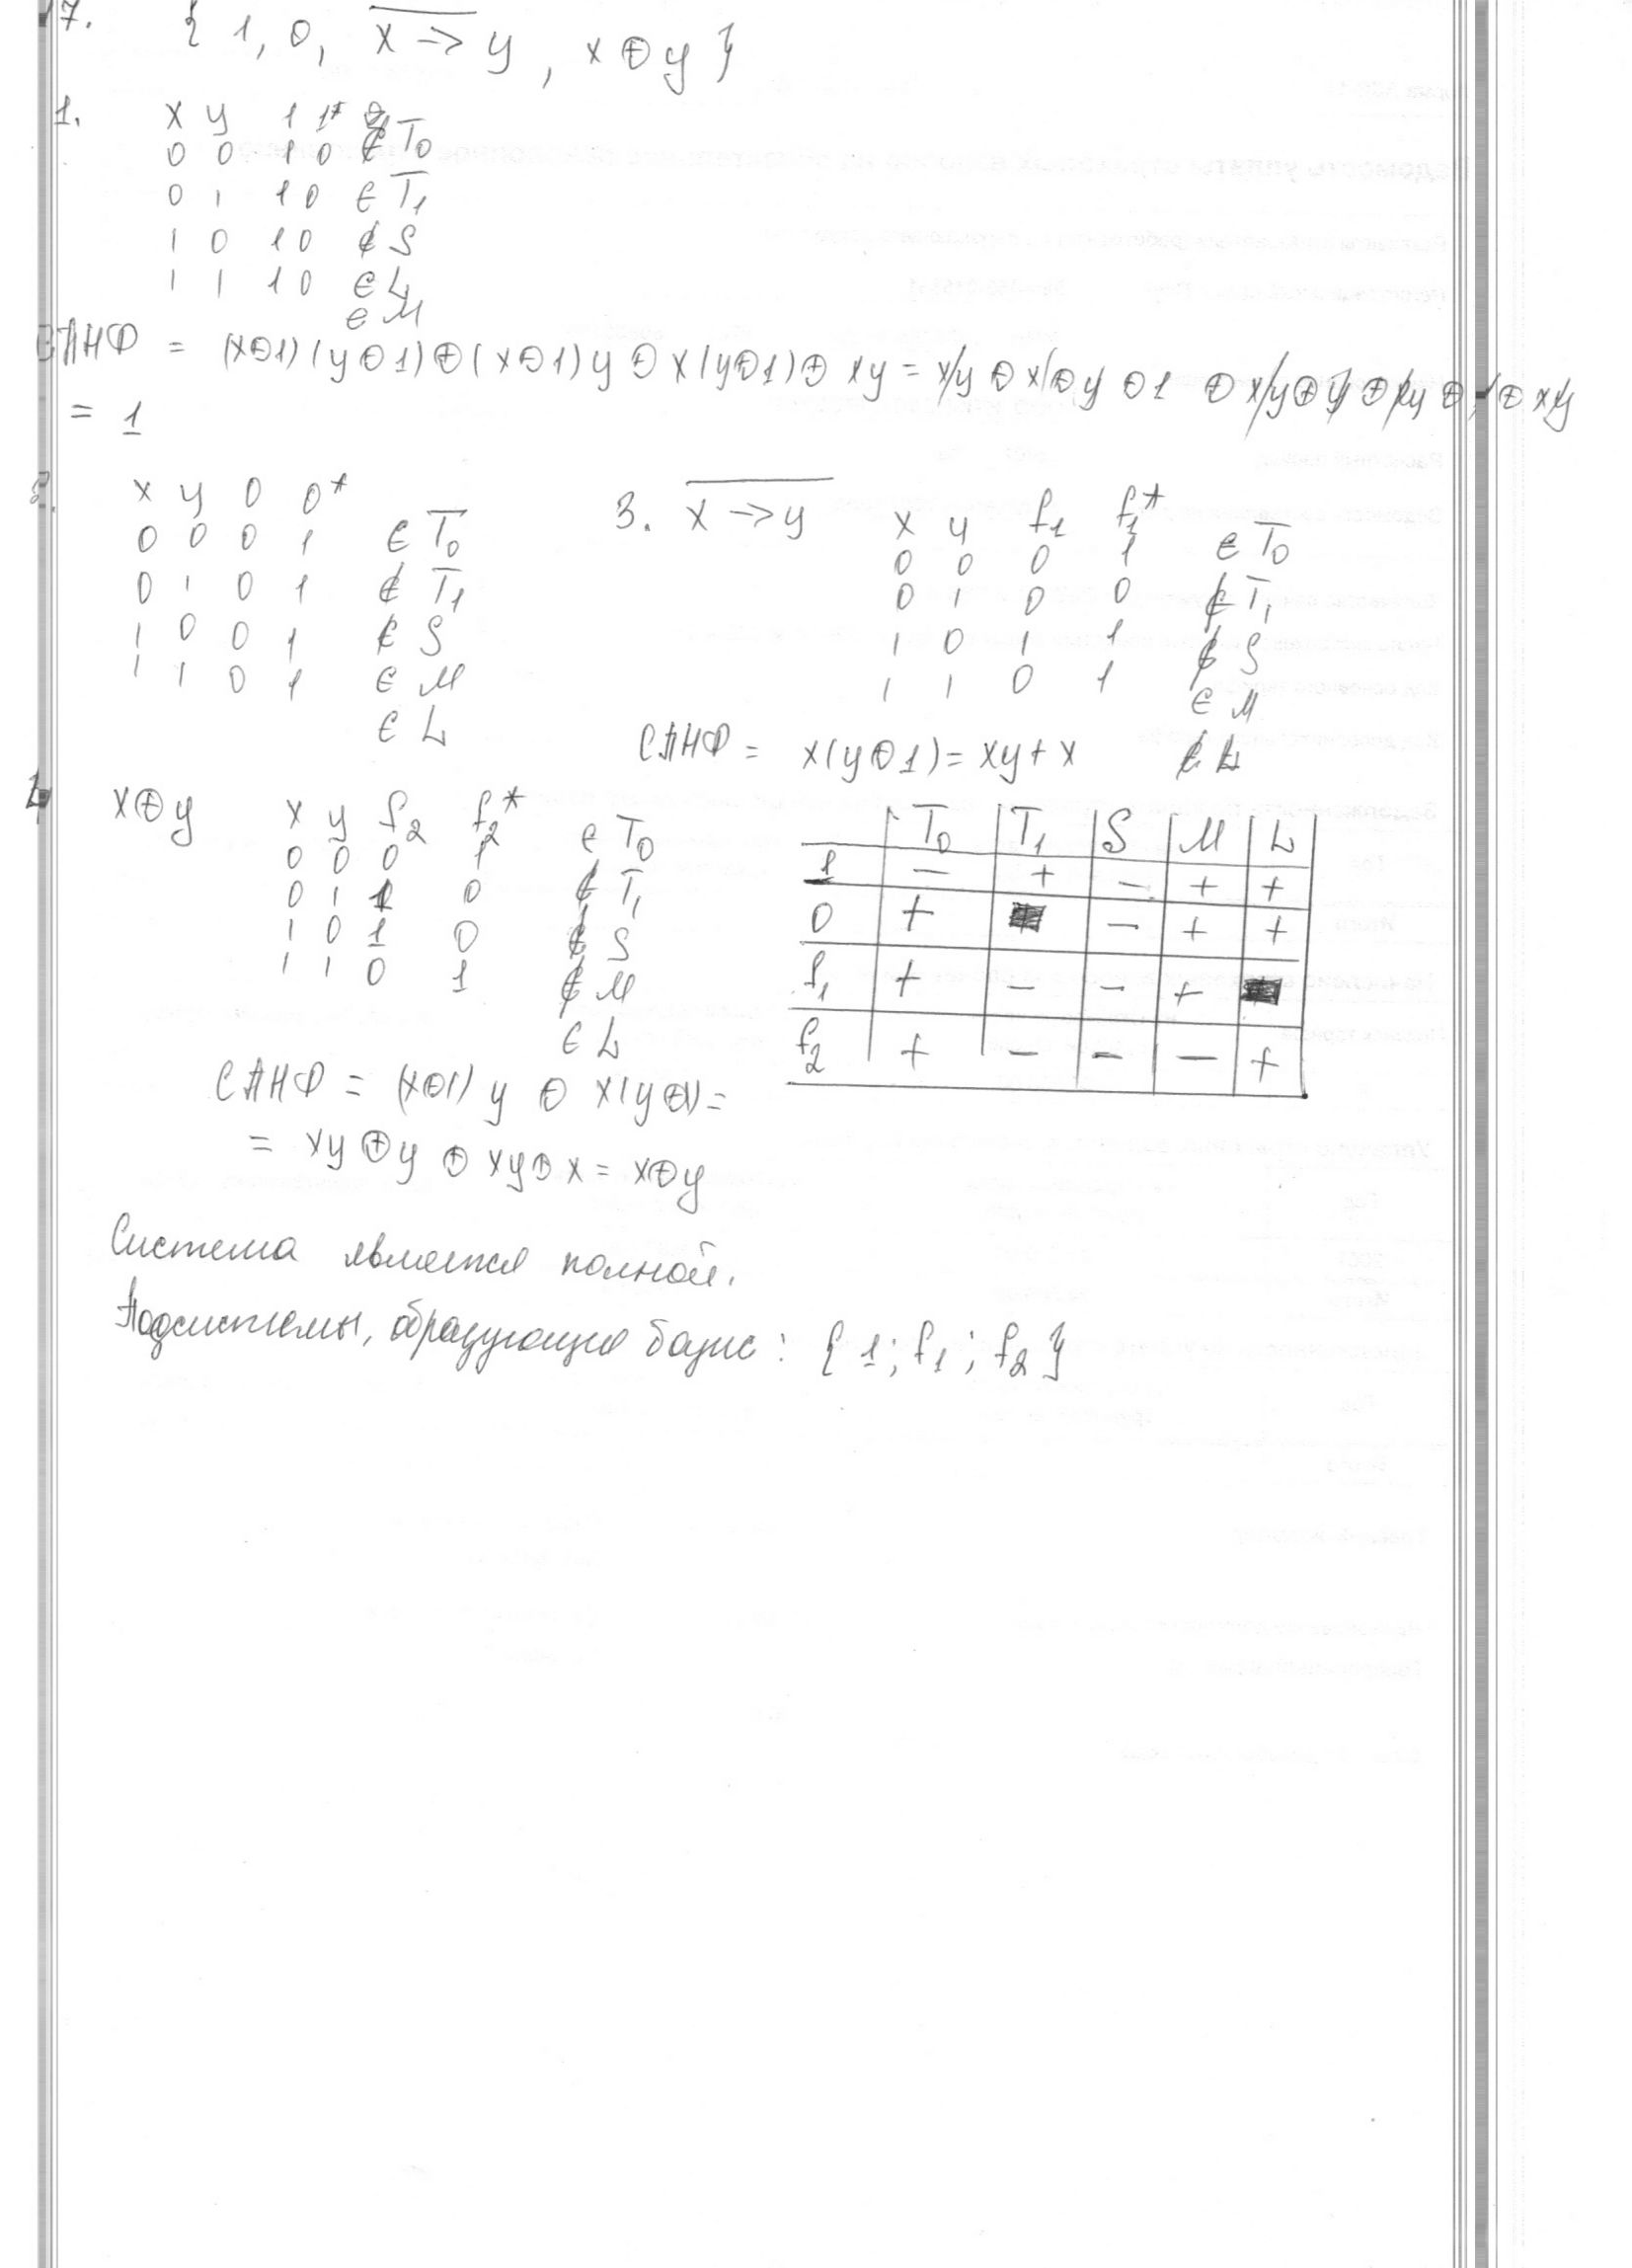 17. { 1, 0, \overline{x → y}, x ⊕ y }
1. x y 1 1*
0 0 1 0 ∉ T₀
0 1 1 0 ∈ T₁
1 0 1 0 ∉ S
1 1 1 0 ∈ L
∈ M
СПНФ = (x⊕1)(y⊕1)⊕(x⊕1)y⊕x(y⊕1)⊕xy = xy⊕x⊕y⊕1⊕xy⊕y⊕xy⊕x⊕xy
= 1
2. x y 0 0*
0 0 0 1 ∈ T₀
0 1 0 1 ∉ T₁
1 0 0 1 ∉ S
1 1 0 1 ∈ M
∈ L
3. \overline{x → y} x y f₁ f₁*
0 0 0 1 ∈ T₀
0 1 0 0 ∉ T₁
1 0 1 1 ∉ S
1 1 0 1 ∈ M
СПНФ = x(y⊕1) = xy + x ∉ L
4 x⊕y x y f₂ f₂*
0 0 0 1 ∈ T₀
0 1 1 0 ∉ T₁
1 0 1 0 ∉ S
1 1 0 1 ∉ M
∈ L
СПНФ = (x⊕1) y ⊕ x(y⊕1) =
= xy ⊕ y ⊕ xy ⊕ x = x⊕y
T₀ T₁ S M L
1 − + − + +
0 + − + +
f₁ + − − +
f₂ + − − − +
Система является полной.
Подсистемы, образующие базис: { 1; f₁; f₂ }